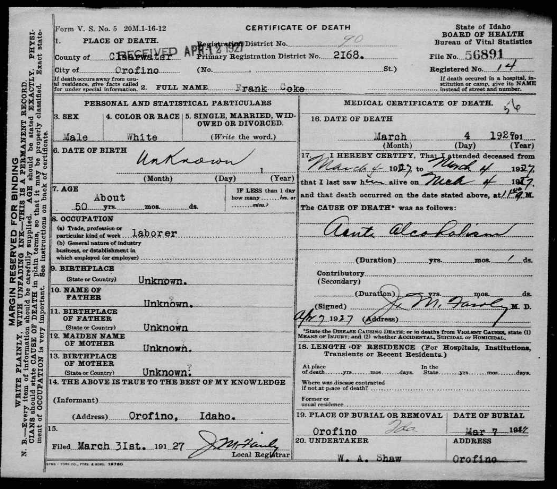 Form V. S. No. 5 20M.1-16-12
CERTIFICATE OF DEATH
State of Idaho
BOARD OF HEALTH
Bureau of Vital Statistics
1. PLACE OF DEATH
RECEIVED APR 12 1927
Registration District No. 90
County of Clearwater
Primary Registration District No. 2168.
File No. 56891
City of Orofino
(No. St.)
Registered No. 14
If death occurs away from usual residence, give facts called for under special information.
2. FULL NAME Frank Coke
If death occurred in a hospital, institution or camp, give its NAME instead of street and number.
PERSONAL AND STATISTICAL PARTICULARS
3. SEX
Male
4. COLOR OR RACE
White
5. SINGLE, MARRIED, WIDOWED OR DIVORCED.
(Write the word.)
6. DATE OF BIRTH
Unknown
(Month) (Day) (Year)
7. AGE
About
50 yrs. mos. ds.
IF LESS than 1 day how many hrs. or min.?
8. OCCUPATION
(a) Trade, profession or particular kind of work laborer
(b) General nature of industry, business, or establishment in which employed (or employer)
9. BIRTHPLACE
(State or Country) Unknown.
10. NAME OF FATHER Unknown.
11. BIRTHPLACE OF FATHER
(State or Country) Unknown
12. MAIDEN NAME OF MOTHER Unknown.
13. BIRTHPLACE OF MOTHER
(State or Country) Unknown.
14. THE ABOVE IS TRUE TO THE BEST OF MY KNOWLEDGE
(Informant)
(Address) Orofino, Idaho.
15.
Filed March 31st. 1927
J. M. Fairly
Local Registrar
MEDICAL CERTIFICATE OF DEATH.
56
16. DATE OF DEATH
March 4 1927
(Month) (Day) (Year)
17. I HEREBY CERTIFY, That I attended deceased from
March 4 1927 to March 4 1927
that I last saw him alive on Mch 4 1927
and that death occurred on the date stated above, at M.
The CAUSE OF DEATH* was as follows:
Acute Alcoholism
(Duration) yrs. mos. 1 ds.
Contributory
(Secondary)
(Duration) yrs. mos. ds.
(Signed) J. M. Fairly M. D.
Apr 7 1927 (Address)
*State the DISEASE CAUSING DEATH; or in deaths from VIOLENT CAUSES, state (1) MEANS OF INJURY; and (2) whether ACCIDENTAL, SUICIDAL or HOMICIDAL.
18. LENGTH OF RESIDENCE (For Hospitals, Institutions, Transients or Recent Residents.)
At place of death yrs. mos. ds. In the State yrs. mos. ds.
Where was disease contracted if not at place of death?
Former or usual residence
19. PLACE OF BURIAL OR REMOVAL
Orofino
DATE OF BURIAL
Mar 7 1927
20. UNDERTAKER
W. A. Shaw
ADDRESS
Orofino
MARGIN RESERVED FOR BINDING
WRITE PLAINLY, WITH UNFADING INK—THIS IS A PERMANENT RECORD.
N. B.—Every item of information should be carefully supplied. AGE should be stated EXACTLY. PHYSICIANS should state CAUSE OF DEATH in plain terms, so that it may be properly classified. Exact statement of OCCUPATION is very important. See instructions on back of certificate.